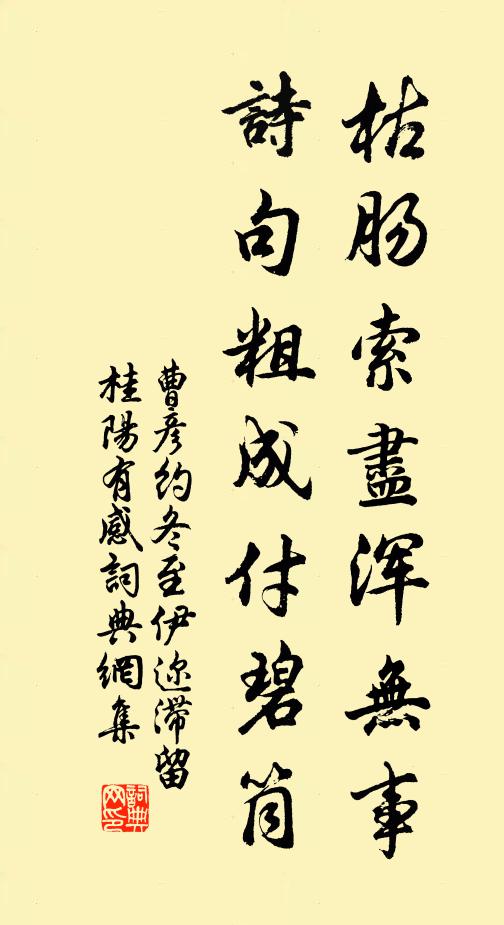 枯肠索盡浑無事
詩句粗成付碧筒
曹彦约冬至伊迩滞留
桂陽有感詞典網集
詞典
网印